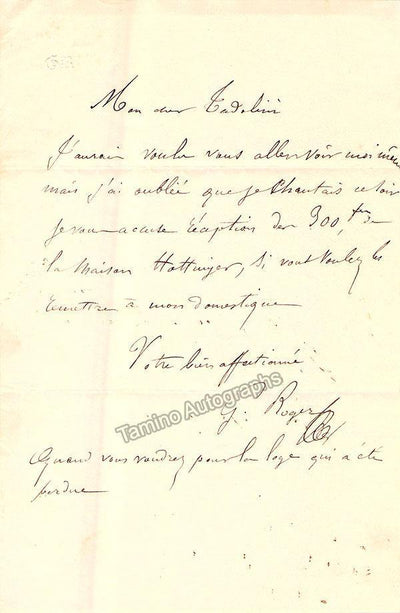 Mon cher Tadolini
J'aurais voulu vous aller voir moi même
mais j'ai oublié que je chantais ce soir
je vous accuse réception des 300, frs de
la Maison Hottinger, si vous voulez les
remettre à mon domestique
Votre bien affectionné
G. Roger
Tamino Autographs
Quand vous voudrez pour la loge qui a été
perdue